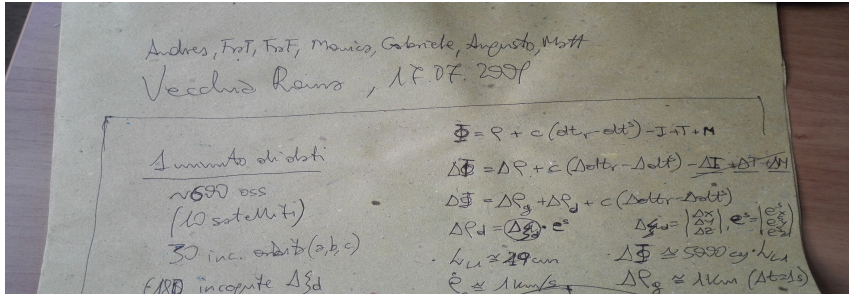 Andres, FraT, FraF, Monica, Gabriele, Augusto, Matt
Vecchia Roma, 17.07.
1 minuto di dati
~690 oss
(10 satelliti)
30 inc. (a,b,c)
incognite Δξd
Φ = ρ + c (dtr - dtˢ) - I + T + M
ΔΦ = Δρ + c (Δdtr - Δdtˢ) - ΔI + ΔT + ΔM
ΔΦ = Δρg + Δρd + c (Δdtr - Δdtˢ)
Δρd = Δξd · eˢ Δξd = |ΔX ΔY ΔZ|, eˢ =
· λL1 ≃ 19 cm · ΔΦ ≃ 5000 cy · λL1
ρ̇ ≃ 1 km/s Δρg ≃ 1 km (Δt=1s)